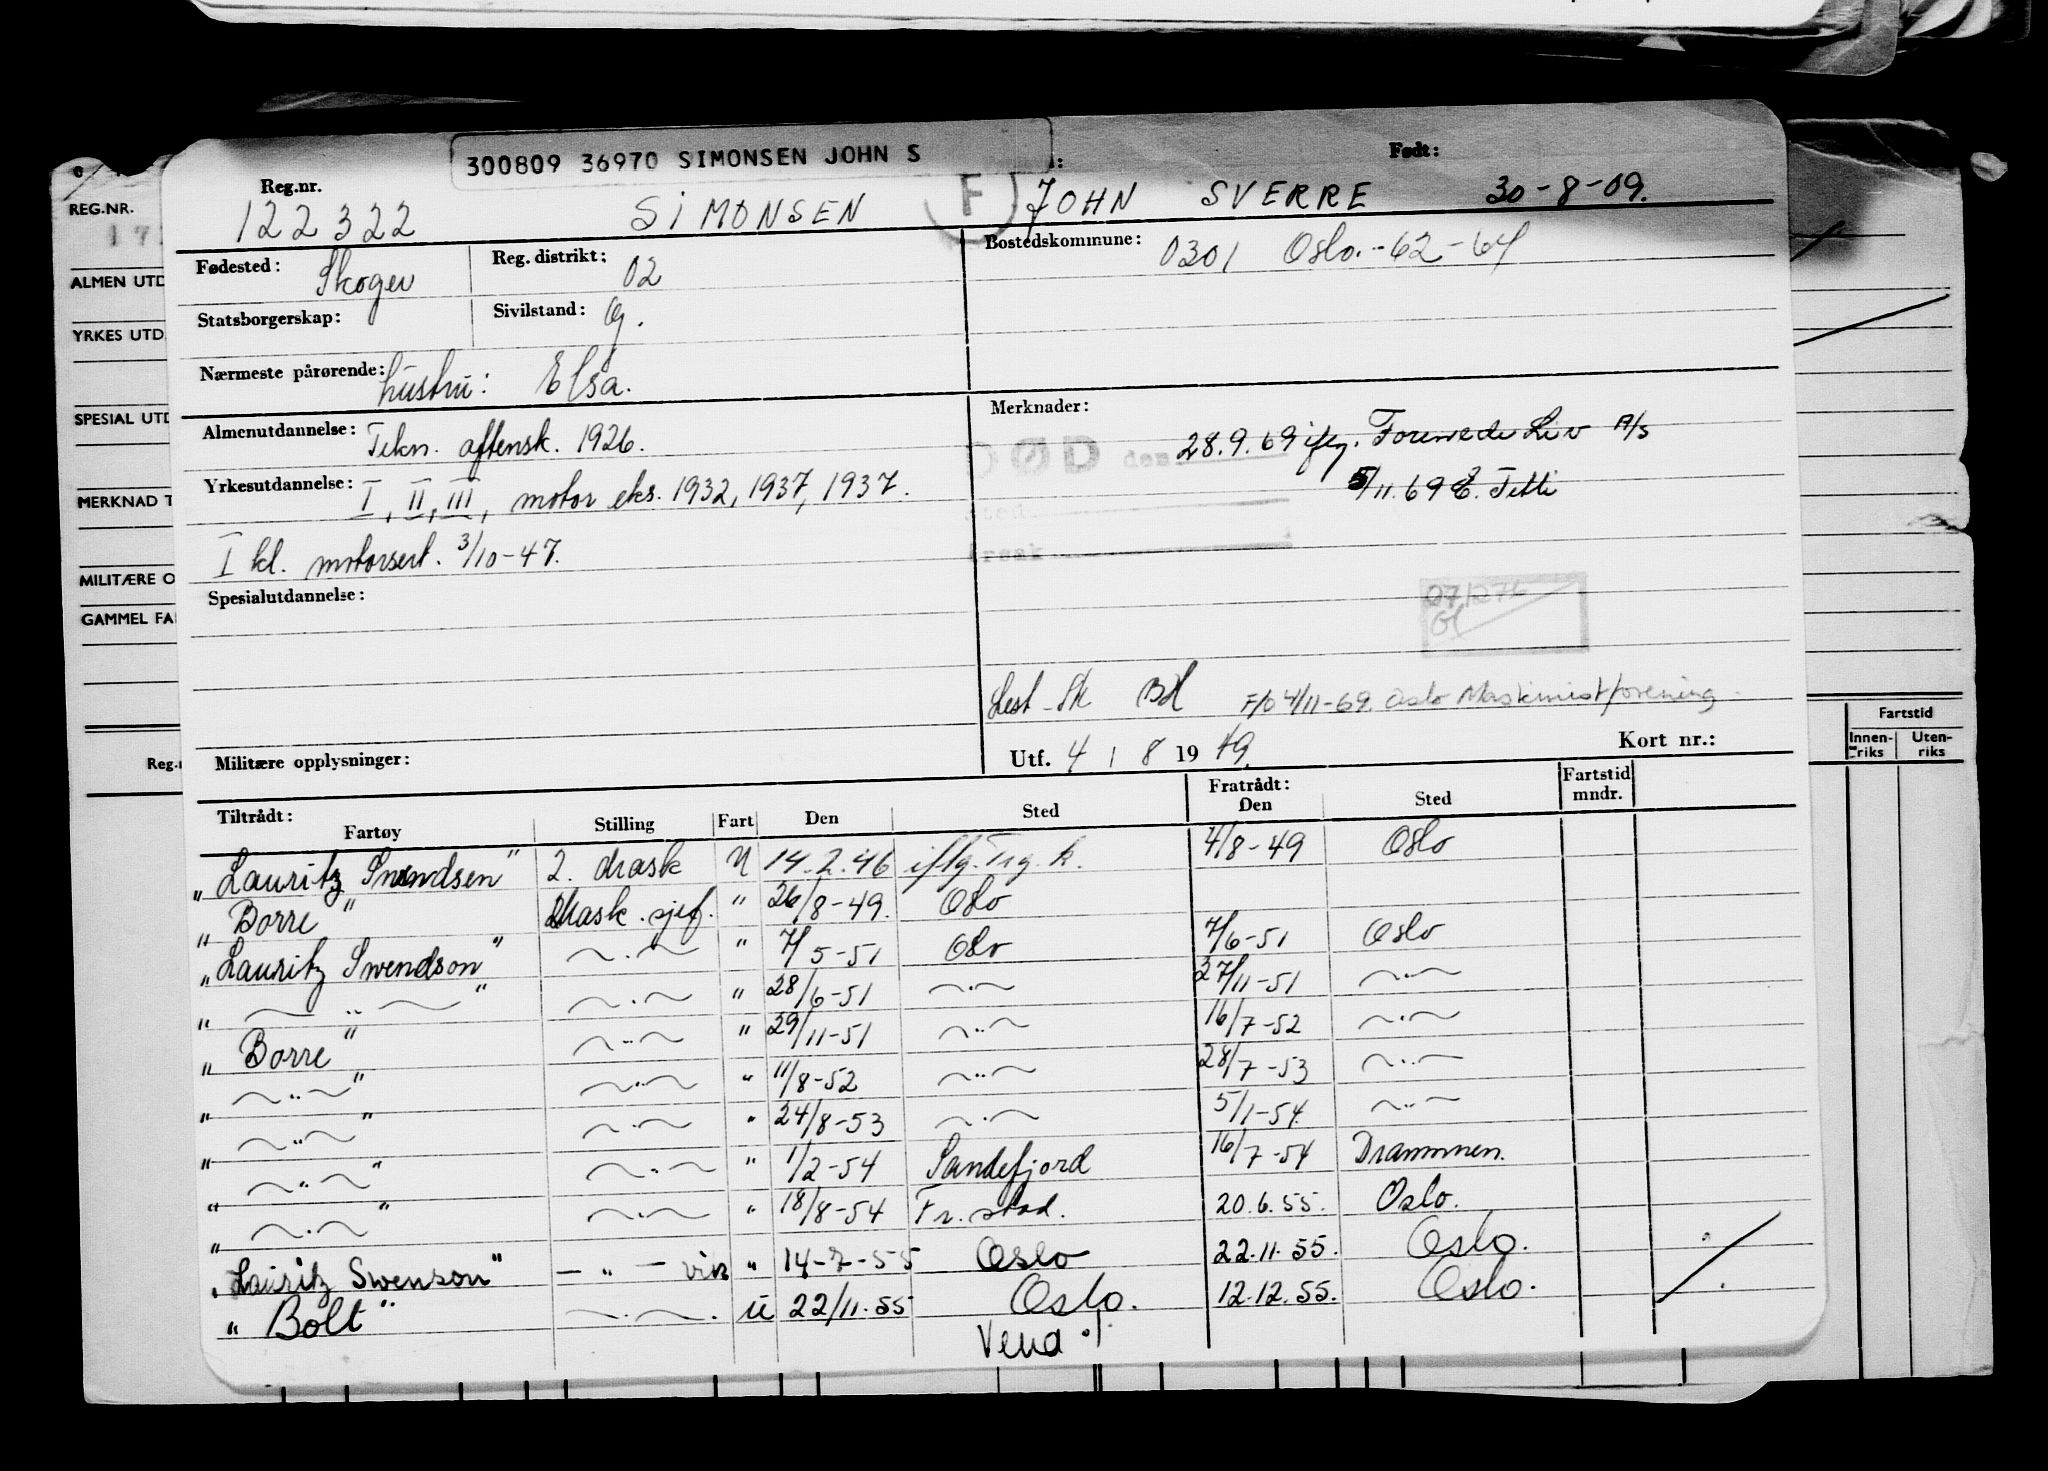 300809 36970 SIMONSEN JOHN S
Reg.nr. Født:
122322 SIMONSEN F JOHN SVERRE 30-8-09.
Fødested: Skoger Reg. distrikt: 02 Bostedskommune: 0301 Oslo.-62-64
Statsborgerskap: Sivilstand: G.
Nærmeste pårørende: hustru: Elsa.
Almenutdannelse: Tekn. aftensk. 1926. Merknader:
DØD den 28.9.69 iflg. Liv A/S
Yrkesutdannelse: I, II, III, motor eks. 1932, 1937, 1937. 5/11.69
Sted
I kl. motorsert. 3/10-47. Årsak
Spesialutdannelse: 271276
Lest Sk F/O 4/11-69. Oslo Maskinistforening
Militære opplysninger: Utf. 4 / 8 19 49. Kort nr.:
Tiltrådt: Fratrådt: Fartstid
Fartøy Stilling Fart Den Sted Den Sted mndr.
"Lauritz Swendsen" 2. mask U 14.2.46 iflg. Trg. k. 4/8-49 Oslo
"Borre" Mask.sjef. " 26/8-49. Oslo
"Lauritz Swendson" —·— " 7/5-51 Oslo 7/6-51 Oslo
" — " — " —·— " 28/6-51 —·— 27/11-51 —·—
"Borre" —"— " 29/11-51 —"— 16/7-52 —·—
" —"— " —·— " 11/8-52 —"— 28/7-53 —"—
" —"— " —·— " 24/8-53 —·— 5/1-54. —"—
" —"— " —·— " 1/2-54 Sandefjord 16/7-54 Drammen.
" —·— " —·— " 18/8-54 Fr.stad. 20.6.55. Oslo.
"Lauritz Swenson" — " — vik " 14-7-55 Oslo 22.11.55. Oslo.
"Bolt" —·— . u 22/11.55 Oslo. 12.12.55. Oslo.
Vend
REG.NR.
ALMEN UTD
YRKES UTD
SPESIAL UTD
MERKNAD T
MILITÆRE O
GAMMEL FA
Reg.n
Fartstid
Innen-
riks
Uten-
riks